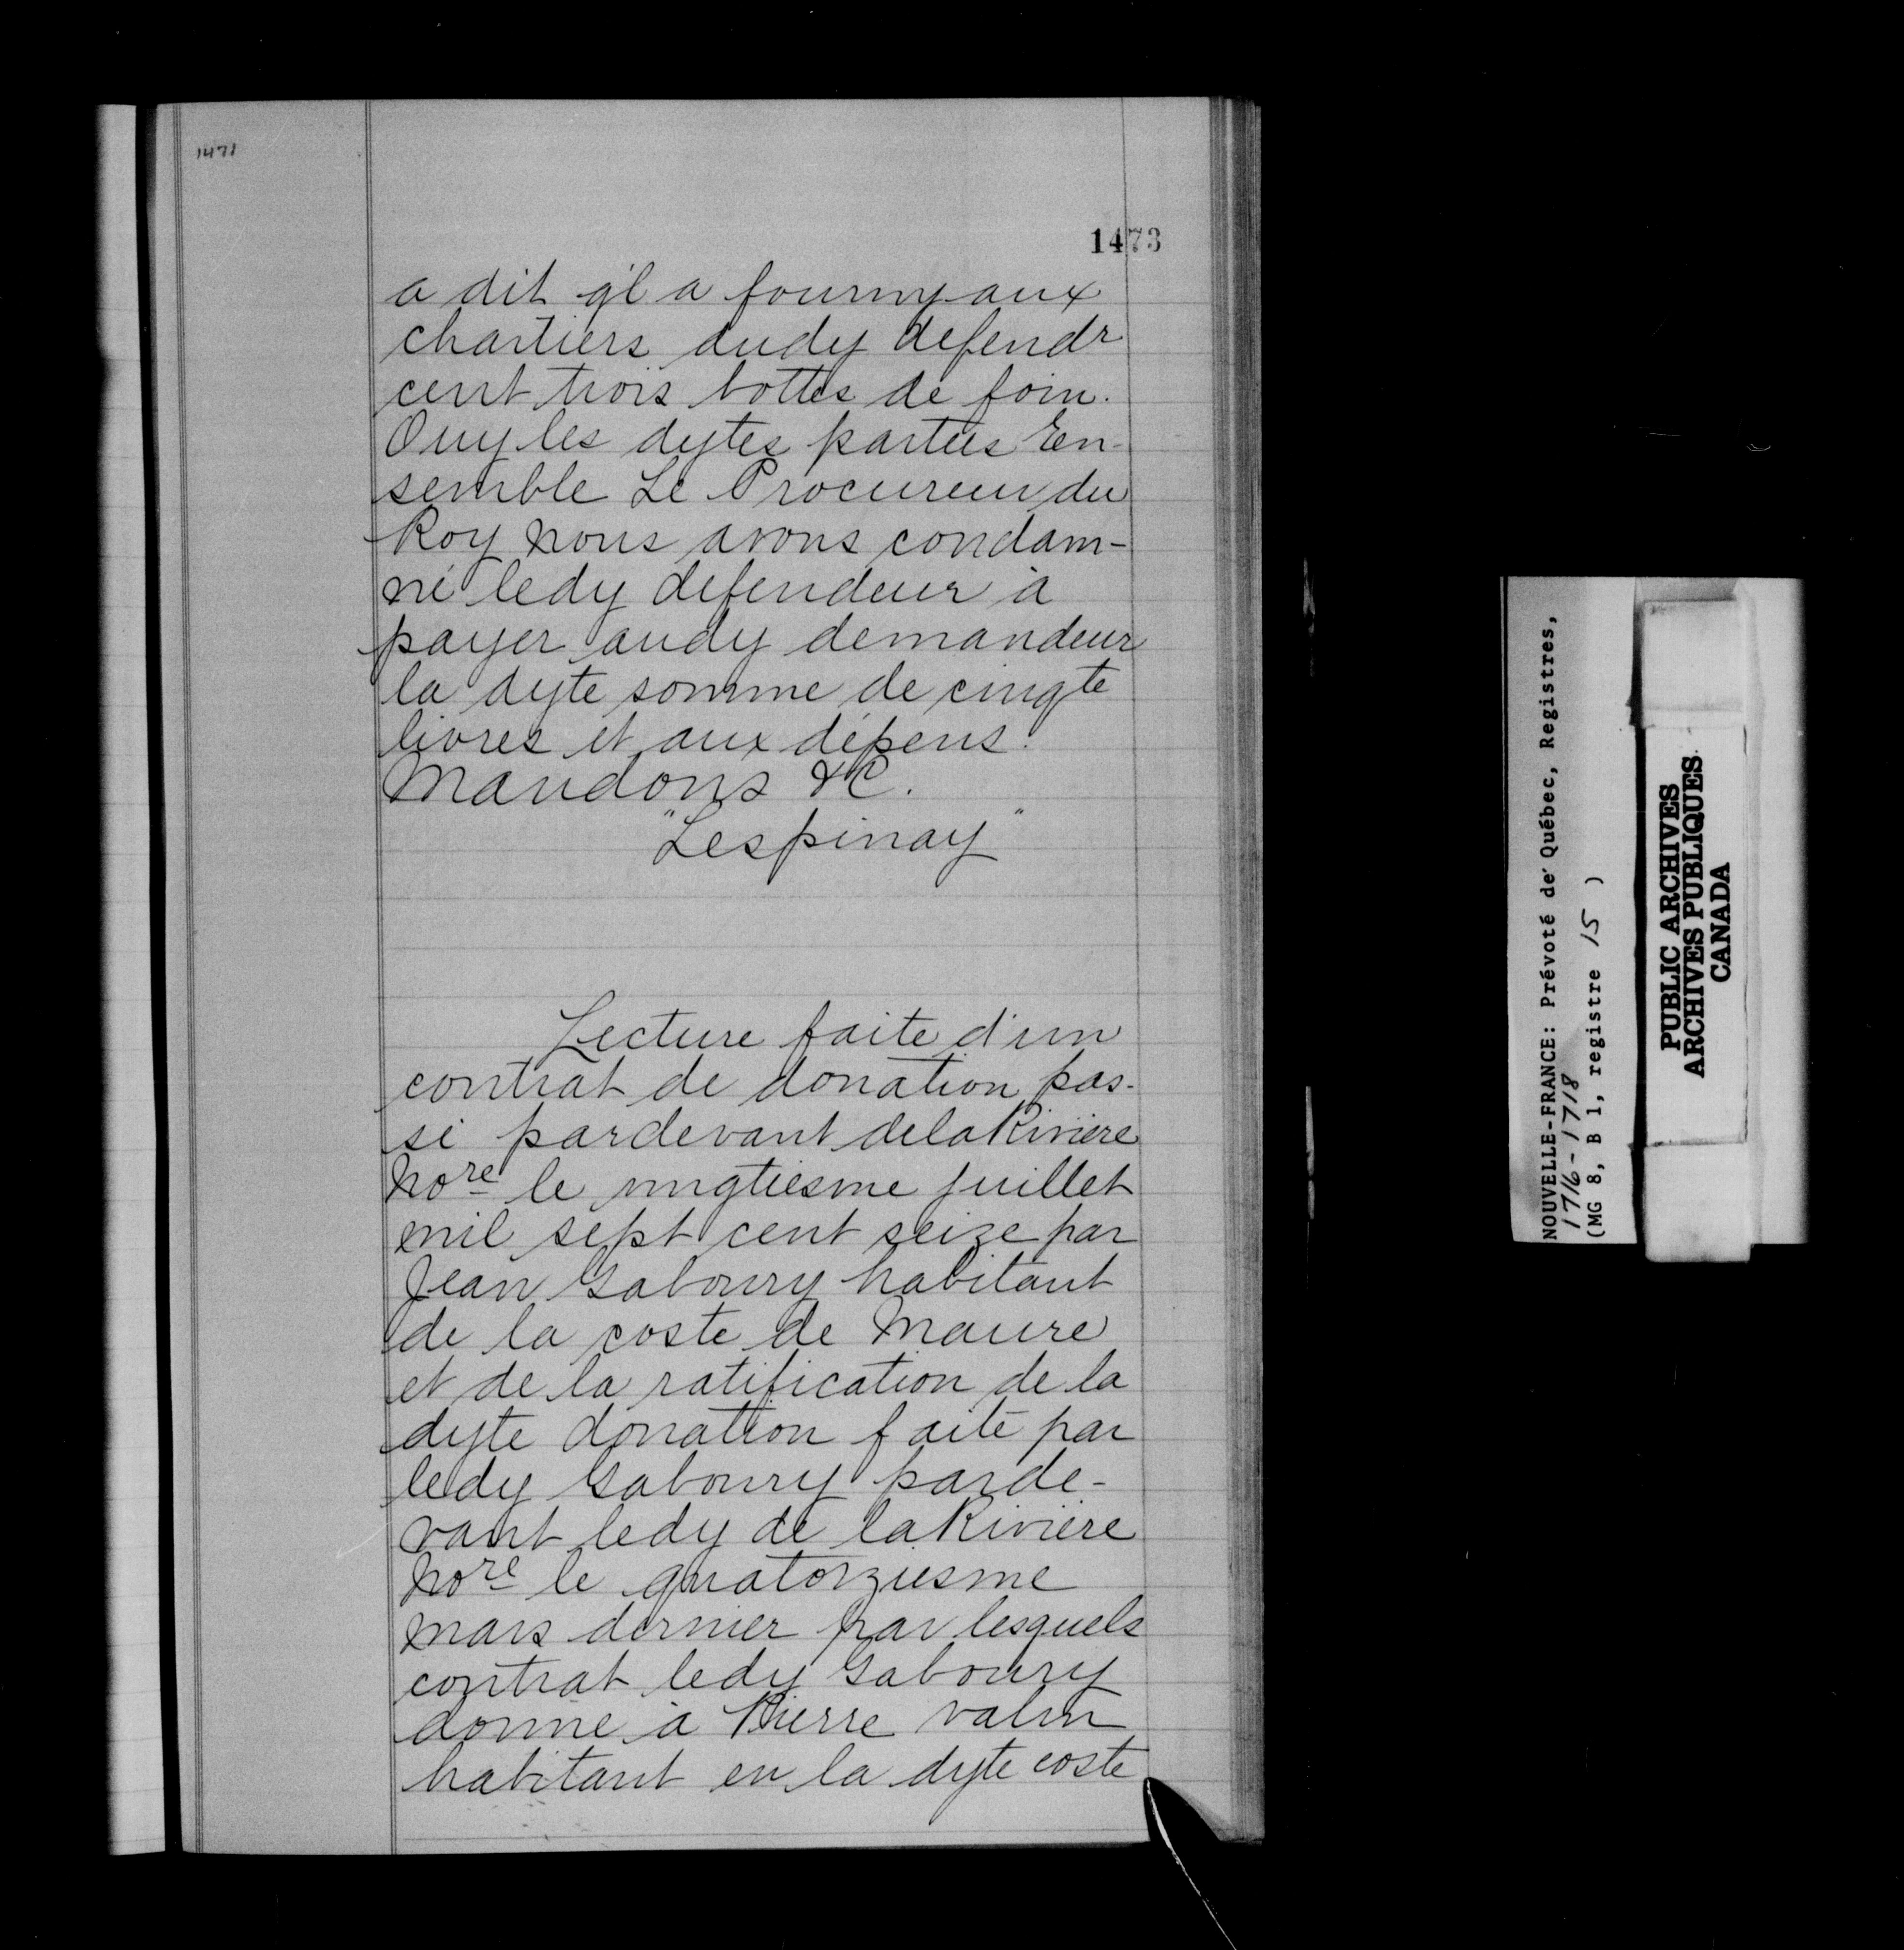 1471
1473
a dit q'l a fourny aux
chartiers dudy defendr
cent trois bottes de foin.
Ouy les dytes parties En-
semble Le Procureur du
Roy nous avons condam-
né ledy defendeur à
payer audy demandeur
la dyte somme de cinqte
livres et aux dépens.
Mandons &c.
"Lespinay"
Lecture faite d'un
contrat de donation pas-
sé pardevant delaRivière
Nore le vingtiesme juillet
mil sept cent seize par
Jean Gaboury habitant
de la coste de Maure
et de la ratification de la
dyte donation faite par
ledy Gaboury parde-
vant ledy de laRivière
Nore le quatorziesme
mars dernier par lesquels
contrat ledy Gaboury
donne à Pierre valin
habitant en la dyte coste
NOUVELLE-FRANCE: Prévoté de Québec, Registres,
1716-1718
(MG 8, B 1, registre 15 )
PUBLIC ARCHIVES
ARCHIVES PUBLIQUES
CANADA